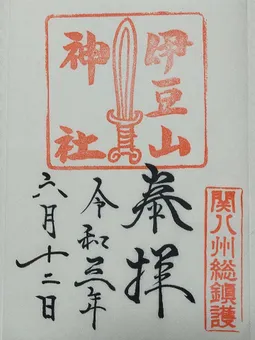 伊豆山
神社
奉拝
関八州総鎮護
令和三年
六月十二日